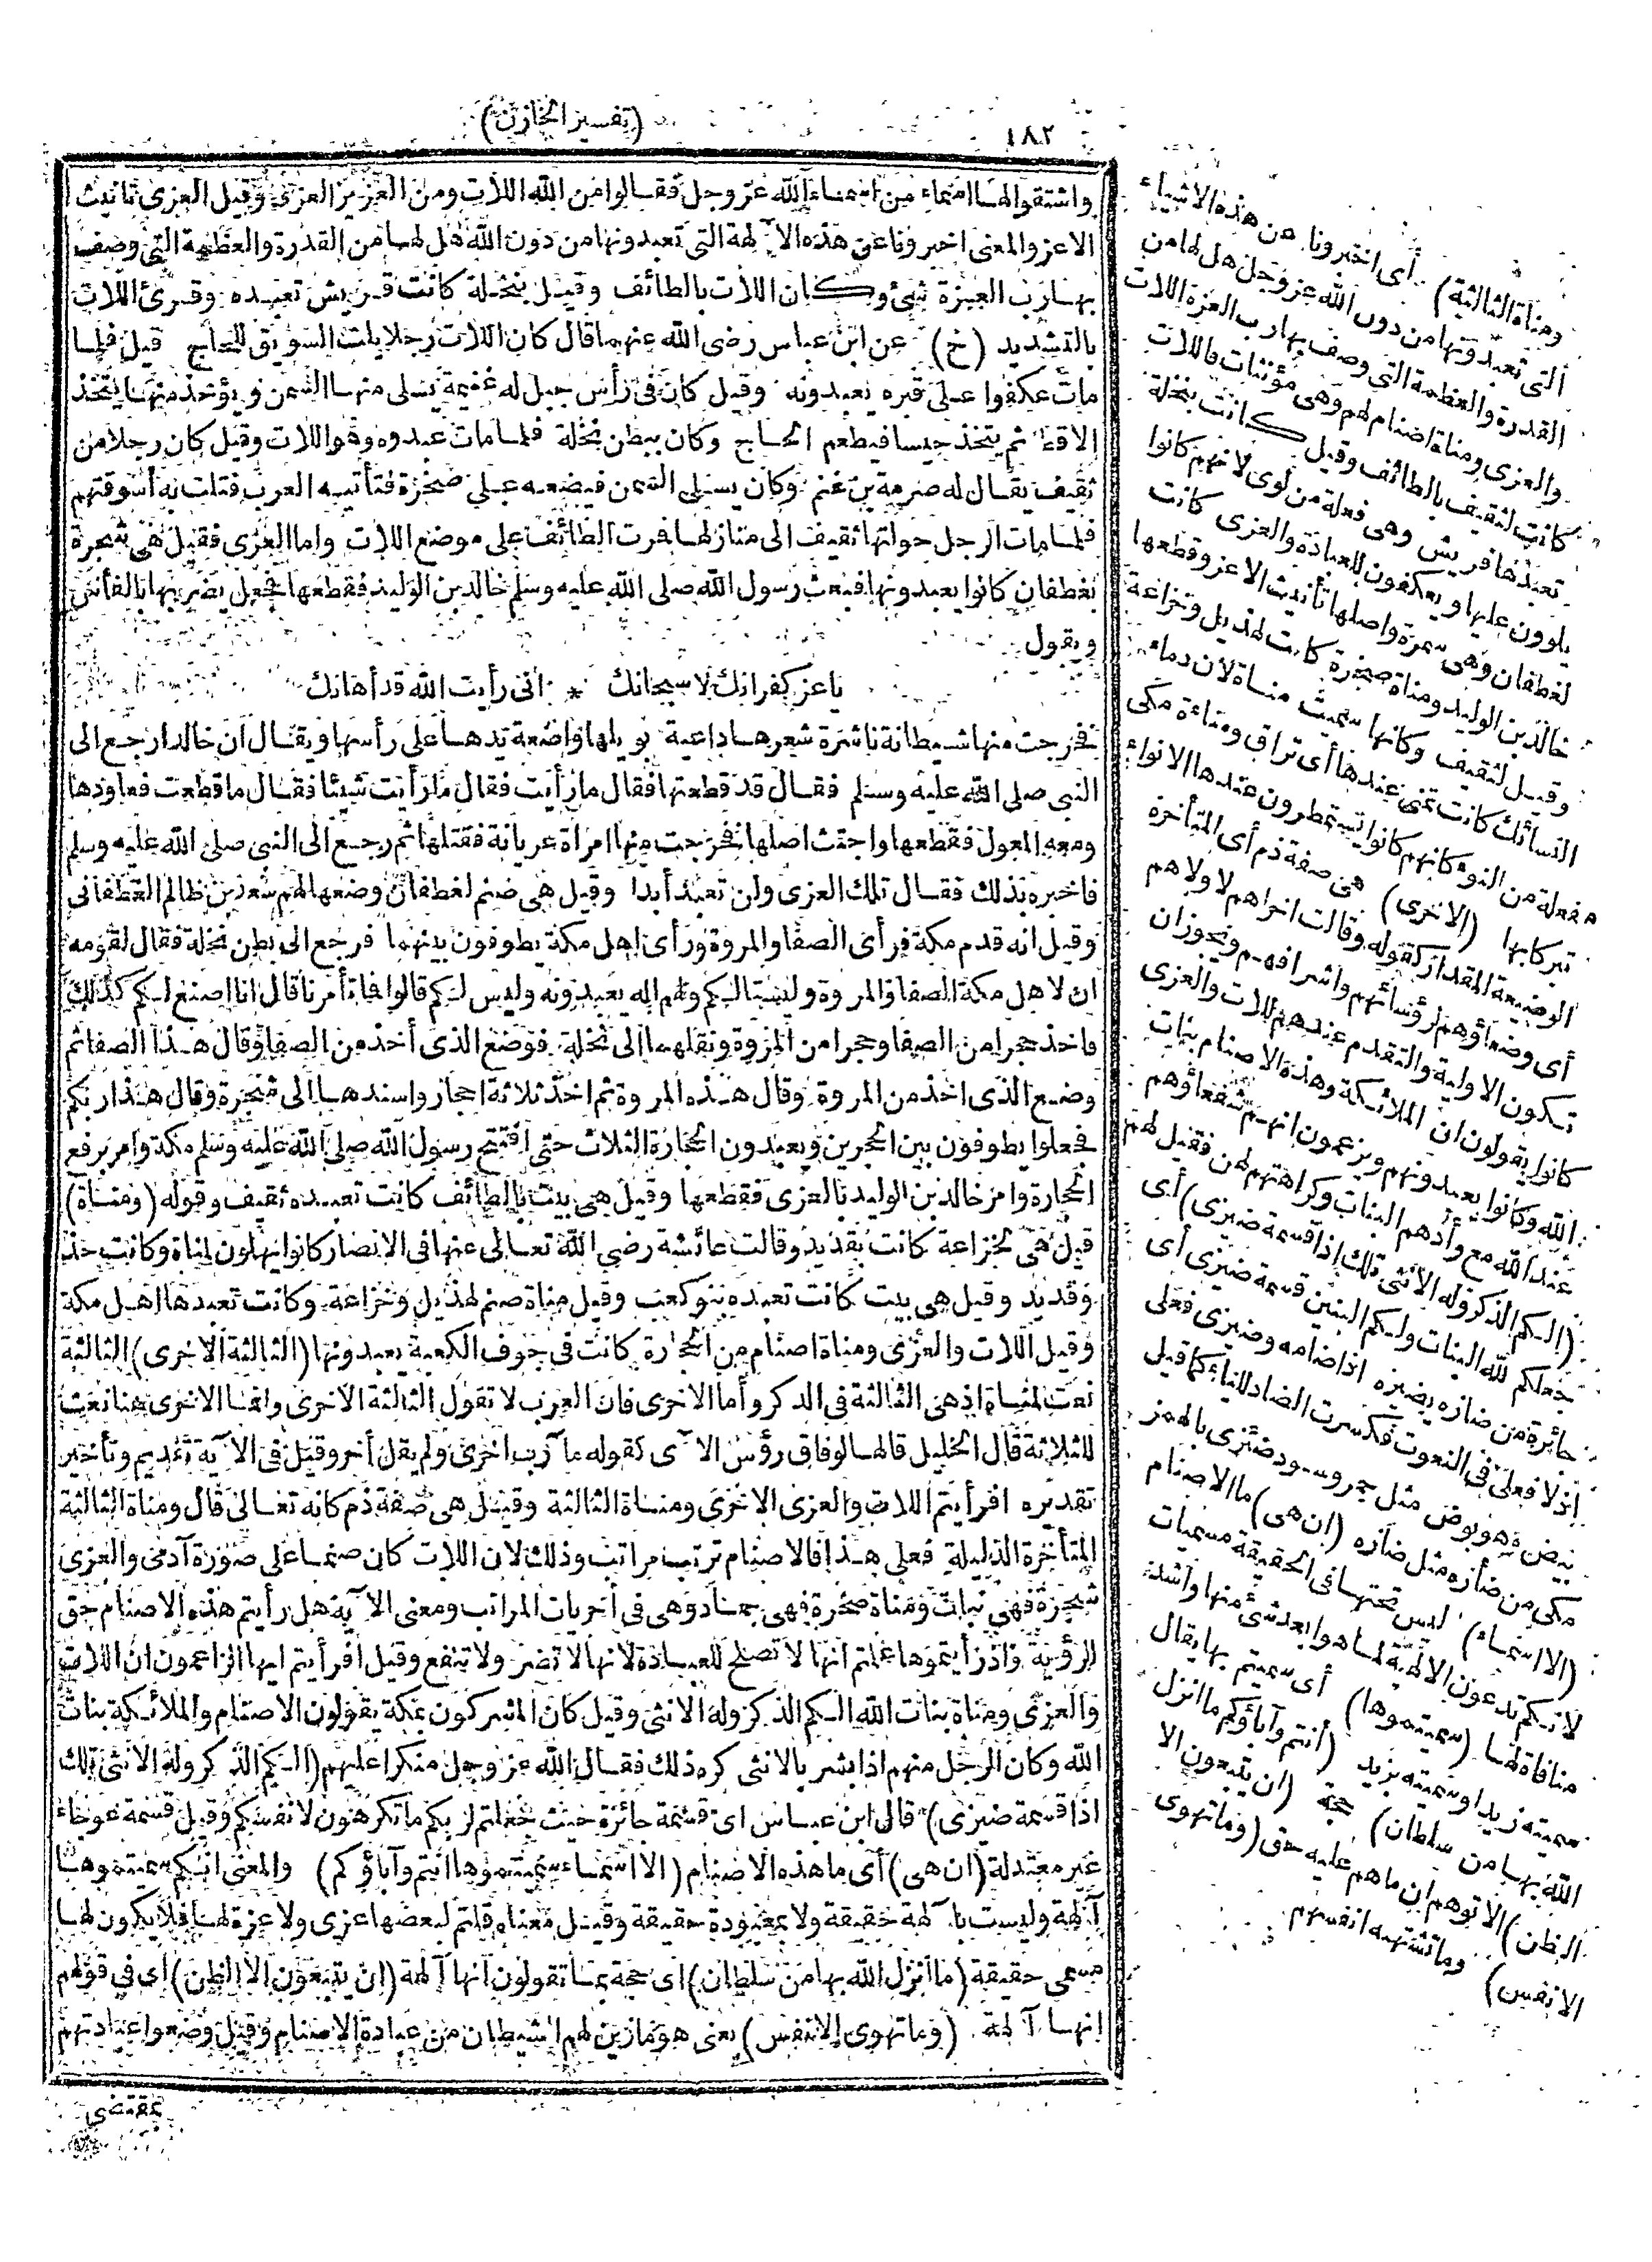 ١٨٢
(تفسير الخازن)
واشتقوا لها اسماء من اسماء الله عز وجل فقالوا من الله اللات ومن العزيز العزى وقيل العزى تأنيث
الاعز والمعنى اخبرونا عن هذه الآلهة التى تعبدونها من دون الله هل لها من القدرة والعظمة التى وصف
بها رب العزة شئ وكان اللات بالطائف وقيل بنخلة كانت قريش تعبده وقرئ اللات
بالتشديد (خ) عن ابن عباس رضى الله عنهما قال كان اللات رجلا يلت السويق للحاج قيل فلما
مات عكفوا على قبره يعبدونه وقيل كان فى رأس جبل له غنيمة يسلى منها السمن ويؤخذ منها يتخذ
الاقط ثم يتخذ حيسا فيطعم الحاج وكان ببطن نخلة فلما مات عبدوه وهو اللات وقيل كان رجلا من
ثقيف يقال له صرمة بن غنم وكان يسلى السمن فيضعه على صخرة فتأتيه العرب فتلت به أسوقتهم
فلما مات الرجل حولتها ثقيف الى منازلها فمرت الطائف على موضع اللات واما العزى فقيل هى شجرة
بغطفان كانوا يعبدونها فبعث رسول الله صلى الله عليه وسلم خالد بن الوليد فقطعها فجعل يضربها بالفأس
ويقول
يا عز كفرانك لا سبحانك * انى رأيت الله قد أهانك
فخرجت منها شيطانة ناشرة شعرها داعية بويلها واضعة يدها على رأسها ويقال ان خالدا رجع الى
النبى صلى الله عليه وسلم فقال قد قطعتها فقال ما رأيت فقال ما رأيت شيئا فقال ما قطعت فعاودها
ومعه المعول فقطعها واجتث اصلها فخرجت منها امرأة عريانة فقتلها ثم رجع الى النبى صلى الله عليه وسلم
فاخبره بذلك فقال تلك العزى ولن تعبد أبدا وقيل هى صنم لغطفان وضعها لهم سعد بن ظالم الغطفانى
وقيل انه قدم مكة فرأى الصفا والمروة ورأى اهل مكة يطوفون بينهما فرجع الى بطن نخلة فقال لقومه
ان لاهل مكة الصفا والمروة وليستا لكم ولهم اله يعبدونه وليس لكم قالوا فما تأمرنا قال انا اصنع لكم كذلك
فاخذ حجرا من الصفا وحجرا من المروة ونقلهما الى نخلة فوضع الذى أخذ من الصفا وقال هذا الصفا ثم
وضع الذى اخذ من المروة وقال هذه المروة ثم اخذ ثلاثة احجار واسندها الى شجرة وقال هذا ربكم
فجعلوا يطوفون بين الحجرين ويعبدون الحجارة الثلاث حتى افتتح رسول الله صلى الله عليه وسلم مكة وامر برفع
الحجارة وامر خالد بن الوليد بالعزى فقطعها وقيل هى بيت بالطائف كانت تعبده ثقيف وقوله (ومناة)
قيل هى لخزاعة كانت بقديد وقالت عائشة رضى الله تعالى عنها فى الانصار كانوا يهلون لمناة وكانت حذ
وقديد وقيل هى بيت كانت تعبده بنو كعب وقيل مناة صنم لهذيل وخزاعة وكانت تعبدها اهل مكة
وقيل اللات والعزى ومناة اصنام من الحجارة كانت فى جوف الكعبة يعبدونها (الثالثة الاخرى) الثالثة
نعت لمناة اذ هى الثالثة فى الذكر وأما الاخرى فان العرب لا تقول الثالثة الاخرى وانما الاخرى هنا نعت
للثلاثة قال الخليل قالها لوفاق رؤس الآى كقوله مآرب اخرى ولم يقل أخر وقيل فى الآية تقديم وتأخير
تقديره افرأيتم اللات والعزى الاخرى ومناة الثالثة وقيل هى صفة ذم كانه تعالى قال ومناة الثالثة
المتأخرة الذليلة فعلى هذا فالاصنام ترتب مراتب وذلك لان اللات كان صنما على صورة آدمى والعزى
شجرة فهى نبات ومناة صخرة فهى جماد وهى فى أخريات المراتب ومعنى الآية هل رأيتم هذه الاصنام حق
الرؤية واذ رأيتموها علمتم انها لا تصلح للعبادة لانها لا تضر ولا تنفع وقيل أفرأيتم ايها الزاعمون ان اللات
والعزى ومناة بنات الله الكم الذكر وله الانثى وقيل كان المشركون بمكة يقولون الاصنام والملائكة بنات
الله وكان الرجل منهم اذا بشر بالانثى كره ذلك فقال الله عز وجل منكرا عليهم (الكم الذكر وله الانثى تلك
اذا قسمة ضيزى) قال ابن عباس اى قسمة جائرة حيث جعلتم لربكم ما تكرهون لانفسكم وقيل قسمة عوجاء
غير معتدلة (ان هى) أى ما هذه الاصنام (الا اسماء سميتموها انتم وآباؤكم) والمعنى انكم سميتموها
آلهة وليست بآلهة حقيقة ولا بمعبودة حقيقة وقيل معناه قلتم لبعضها عزى ولا عزة لها فلا يكون لها
مسمى حقيقة (ما أنزل الله بها من سلطان) اى حجة بما تقولون انها آلهة (ان يتبعون الا الظن) اى فى قولهم
انها آلهة (وما تهوى الانفس) يعنى هو ما زين لهم الشيطان من عبادة الاصنام وقيل وضعوا عبادتهم
بمقتضى
ومناة الثالثة) أى اخبرونا عن هذه الاشياء
التى تعبدونها من دون الله عز وجل هل لها من
القدرة والعظمة التى وصف بها رب العزة اللات
والعزى ومناة اصنام لهم وهى مؤنثات فاللات
كانت لثقيف بالطائف وقيل كانت بنخلة
تعبدها قريش وهى فعلة من لوى لانهم كانوا
يلوون عليها ويعكفون للعبادة والعزى كانت
لغطفان وهى سمرة واصلها تأنيث الاعز وقطعها
خالد بن الوليد ومناة صخرة كانت لهذيل وخزاعة
وقيل لثقيف وكانها سميت مناة لان دماء
النسائك كانت تمنى عندها أى تراق ومناءة مكى
مفعلة من النوء كانهم كانوا يستمطرون عندها الانواء
تبركا بها (الاخرى) هى صفة ذم أى المتأخرة
الوضيعة المقدار كقوله وقالت اخراهم لاولاهم
أى وضعاؤهم لرؤسائهم واشرافهم ويجوز ان
تكون الاولية والتقدم عندهم للات والعزى
كانوا يقولون ان الملائكة وهذه الاصنام بنات
الله وكانوا يعبدونهم ويزعمون انهم شفعاؤهم
عند الله مع وأدهم البنات وكراهتهم لهن فقيل لهم
(الكم الذكر وله الانثى تلك اذا قسمة ضيزى) أى
جعلكم لله البنات ولكم البنين قسمة ضيزى أى
جائرة من ضازه يضيزه اذا ضامه وضيزى فعلى
اذ لا فعلى فى النعوت فكسرت الضاد للياء كما قيل
بيض وهو بوض مثل حمر وسود ضئزى بالهمز
مكى من ضأزه مثل ضازه (ان هى) ما الاصنام
(الا اسماء) ليس تحتها فى الحقيقة مسميات
لانكم تدعون الالهية لما هو ابعد شئ منها واشد
منافاة لها (سميتموها) أى سميتم بها يقال
سميته زيدا وسميته بزيد (أنتم وآباؤكم ما انزل
الله بها من سلطان) حجة (ان يتبعون الا
الظن) الا توهم ان ما هم عليه حق (وما تهوى
الانفس) وما تشتهيه انفسهم